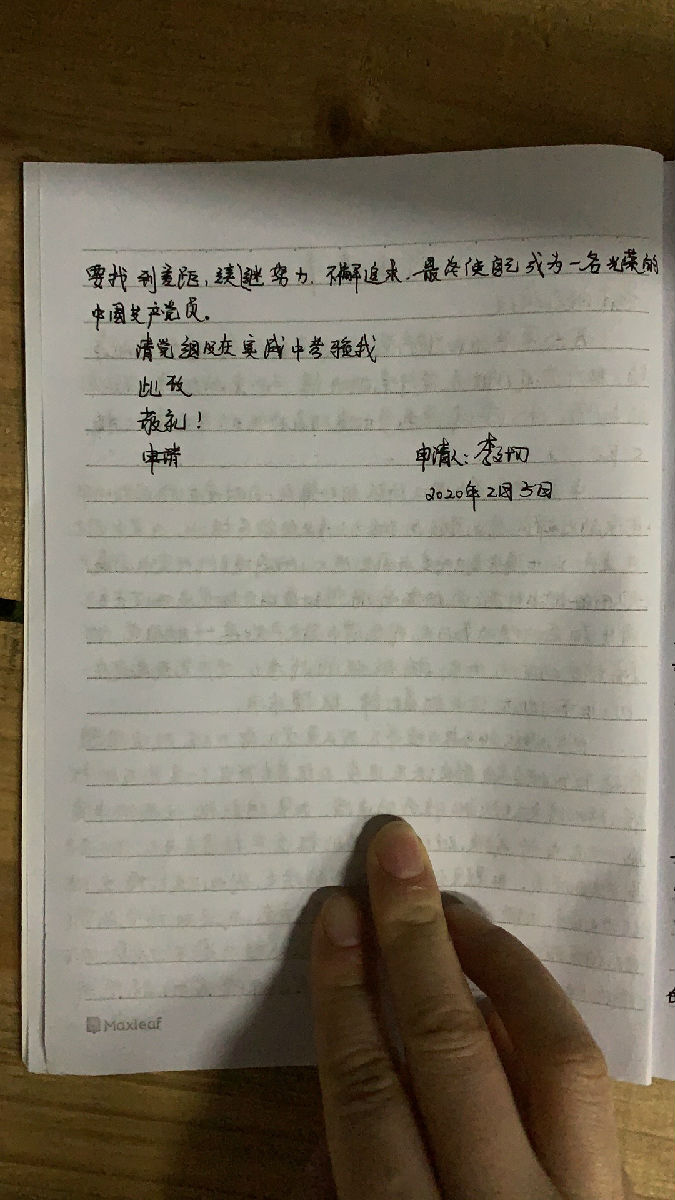 要找到差距，继努力，不懈追求，最终使自己成为一名光荣的
中国共产党员。
请党组织在实践中考验我
此致
敬礼！
申请 申请人：李
2020年2月5日
Maxleaf